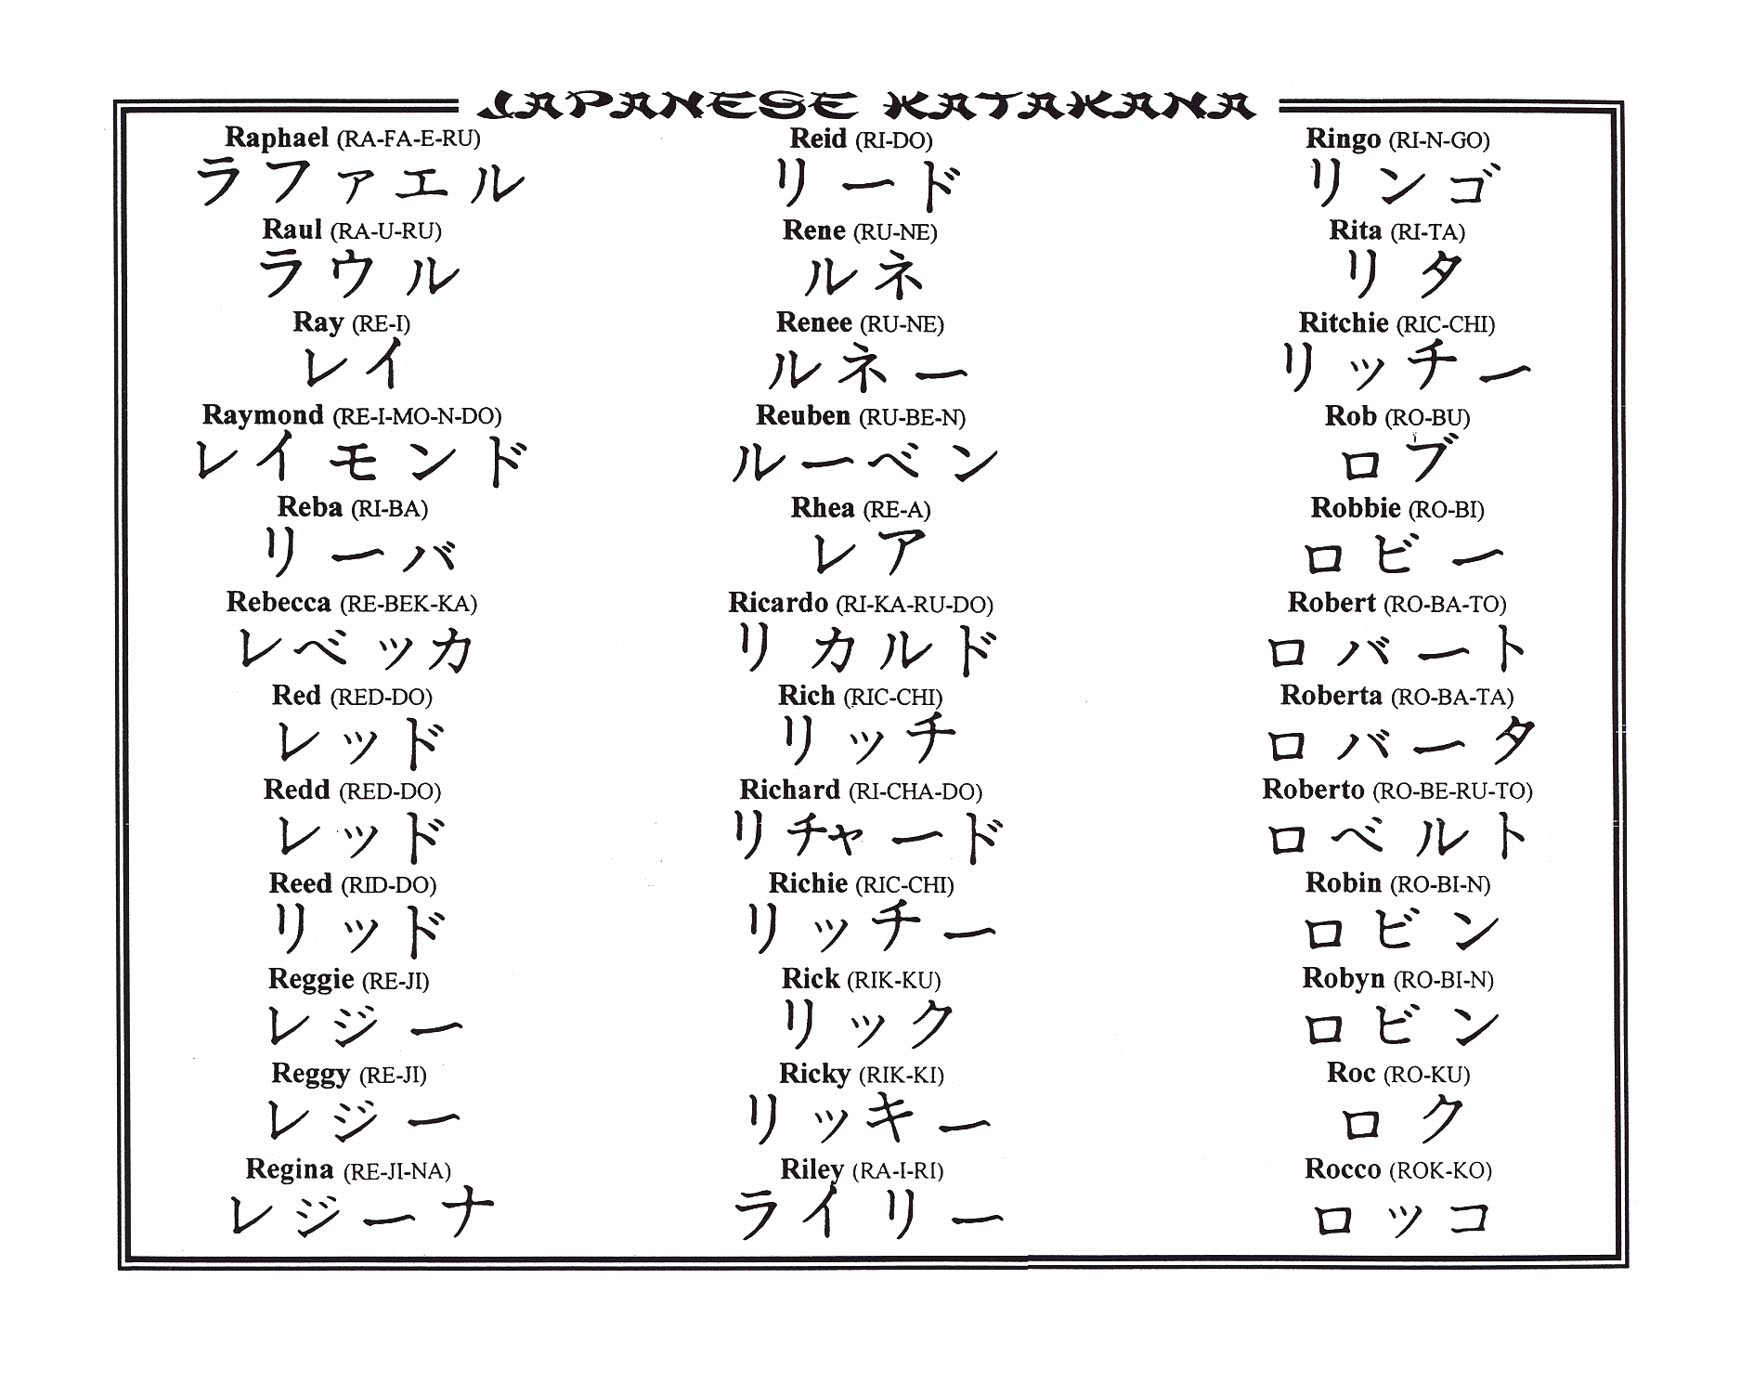 JAPANESE KATAKANA
Raphael (RA-FA-E-RU)
ラファエル
Raul (RA-U-RU)
ラウル
Ray (RE-I)
レイ
Raymond (RE-I-MO-N-DO)
レイモンド
Reba (RI-BA)
リーバ
Rebecca (RE-BEK-KA)
レベッカ
Red (RED-DO)
レッド
Redd (RED-DO)
レッド
Reed (RID-DO)
リッド
Reggie (RE-JI)
レジー
Reggy (RE-JI)
レジー
Regina (RE-JI-NA)
レジーナ
Reid (RI-DO)
リード
Rene (RU-NE)
ルネ
Renee (RU-NE)
ルネー
Reuben (RU-BE-N)
ルーベン
Rhea (RE-A)
レア
Ricardo (RI-KA-RU-DO)
リカルド
Rich (RIC-CHI)
リッチ
Richard (RI-CHA-DO)
リチャード
Richie (RIC-CHI)
リッチー
Rick (RIK-KU)
リック
Ricky (RIK-KI)
リッキー
Riley (RA-I-RI)
ライリー
Ringo (RI-N-GO)
リンゴ
Rita (RI-TA)
リタ
Ritchie (RIC-CHI)
リッチー
Rob (RO-BU)
ロブ
Robbie (RO-BI)
ロビー
Robert (RO-BA-TO)
ロバート
Roberta (RO-BA-TA)
ロバータ
Roberto (RO-BE-RU-TO)
ロベルト
Robin (RO-BI-N)
ロビン
Robyn (RO-BI-N)
ロビン
Roc (RO-KU)
ロク
Rocco (ROK-KO)
ロッコ